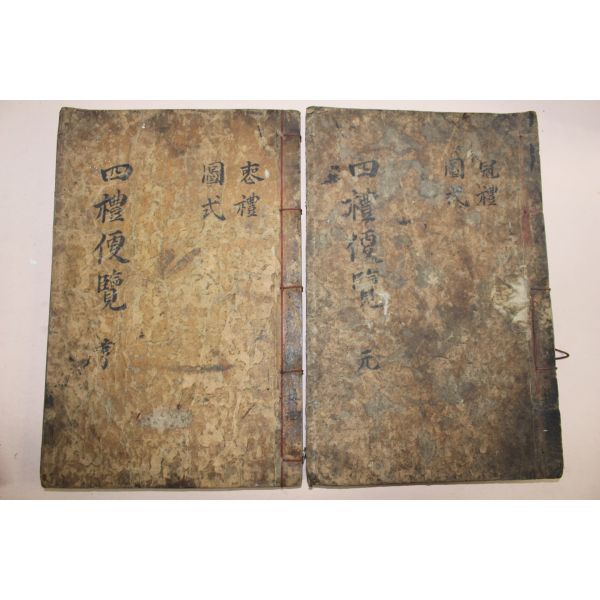 四禮便覽 亨
喪禮
圖式
四禮便覽 元
冠禮
圖式